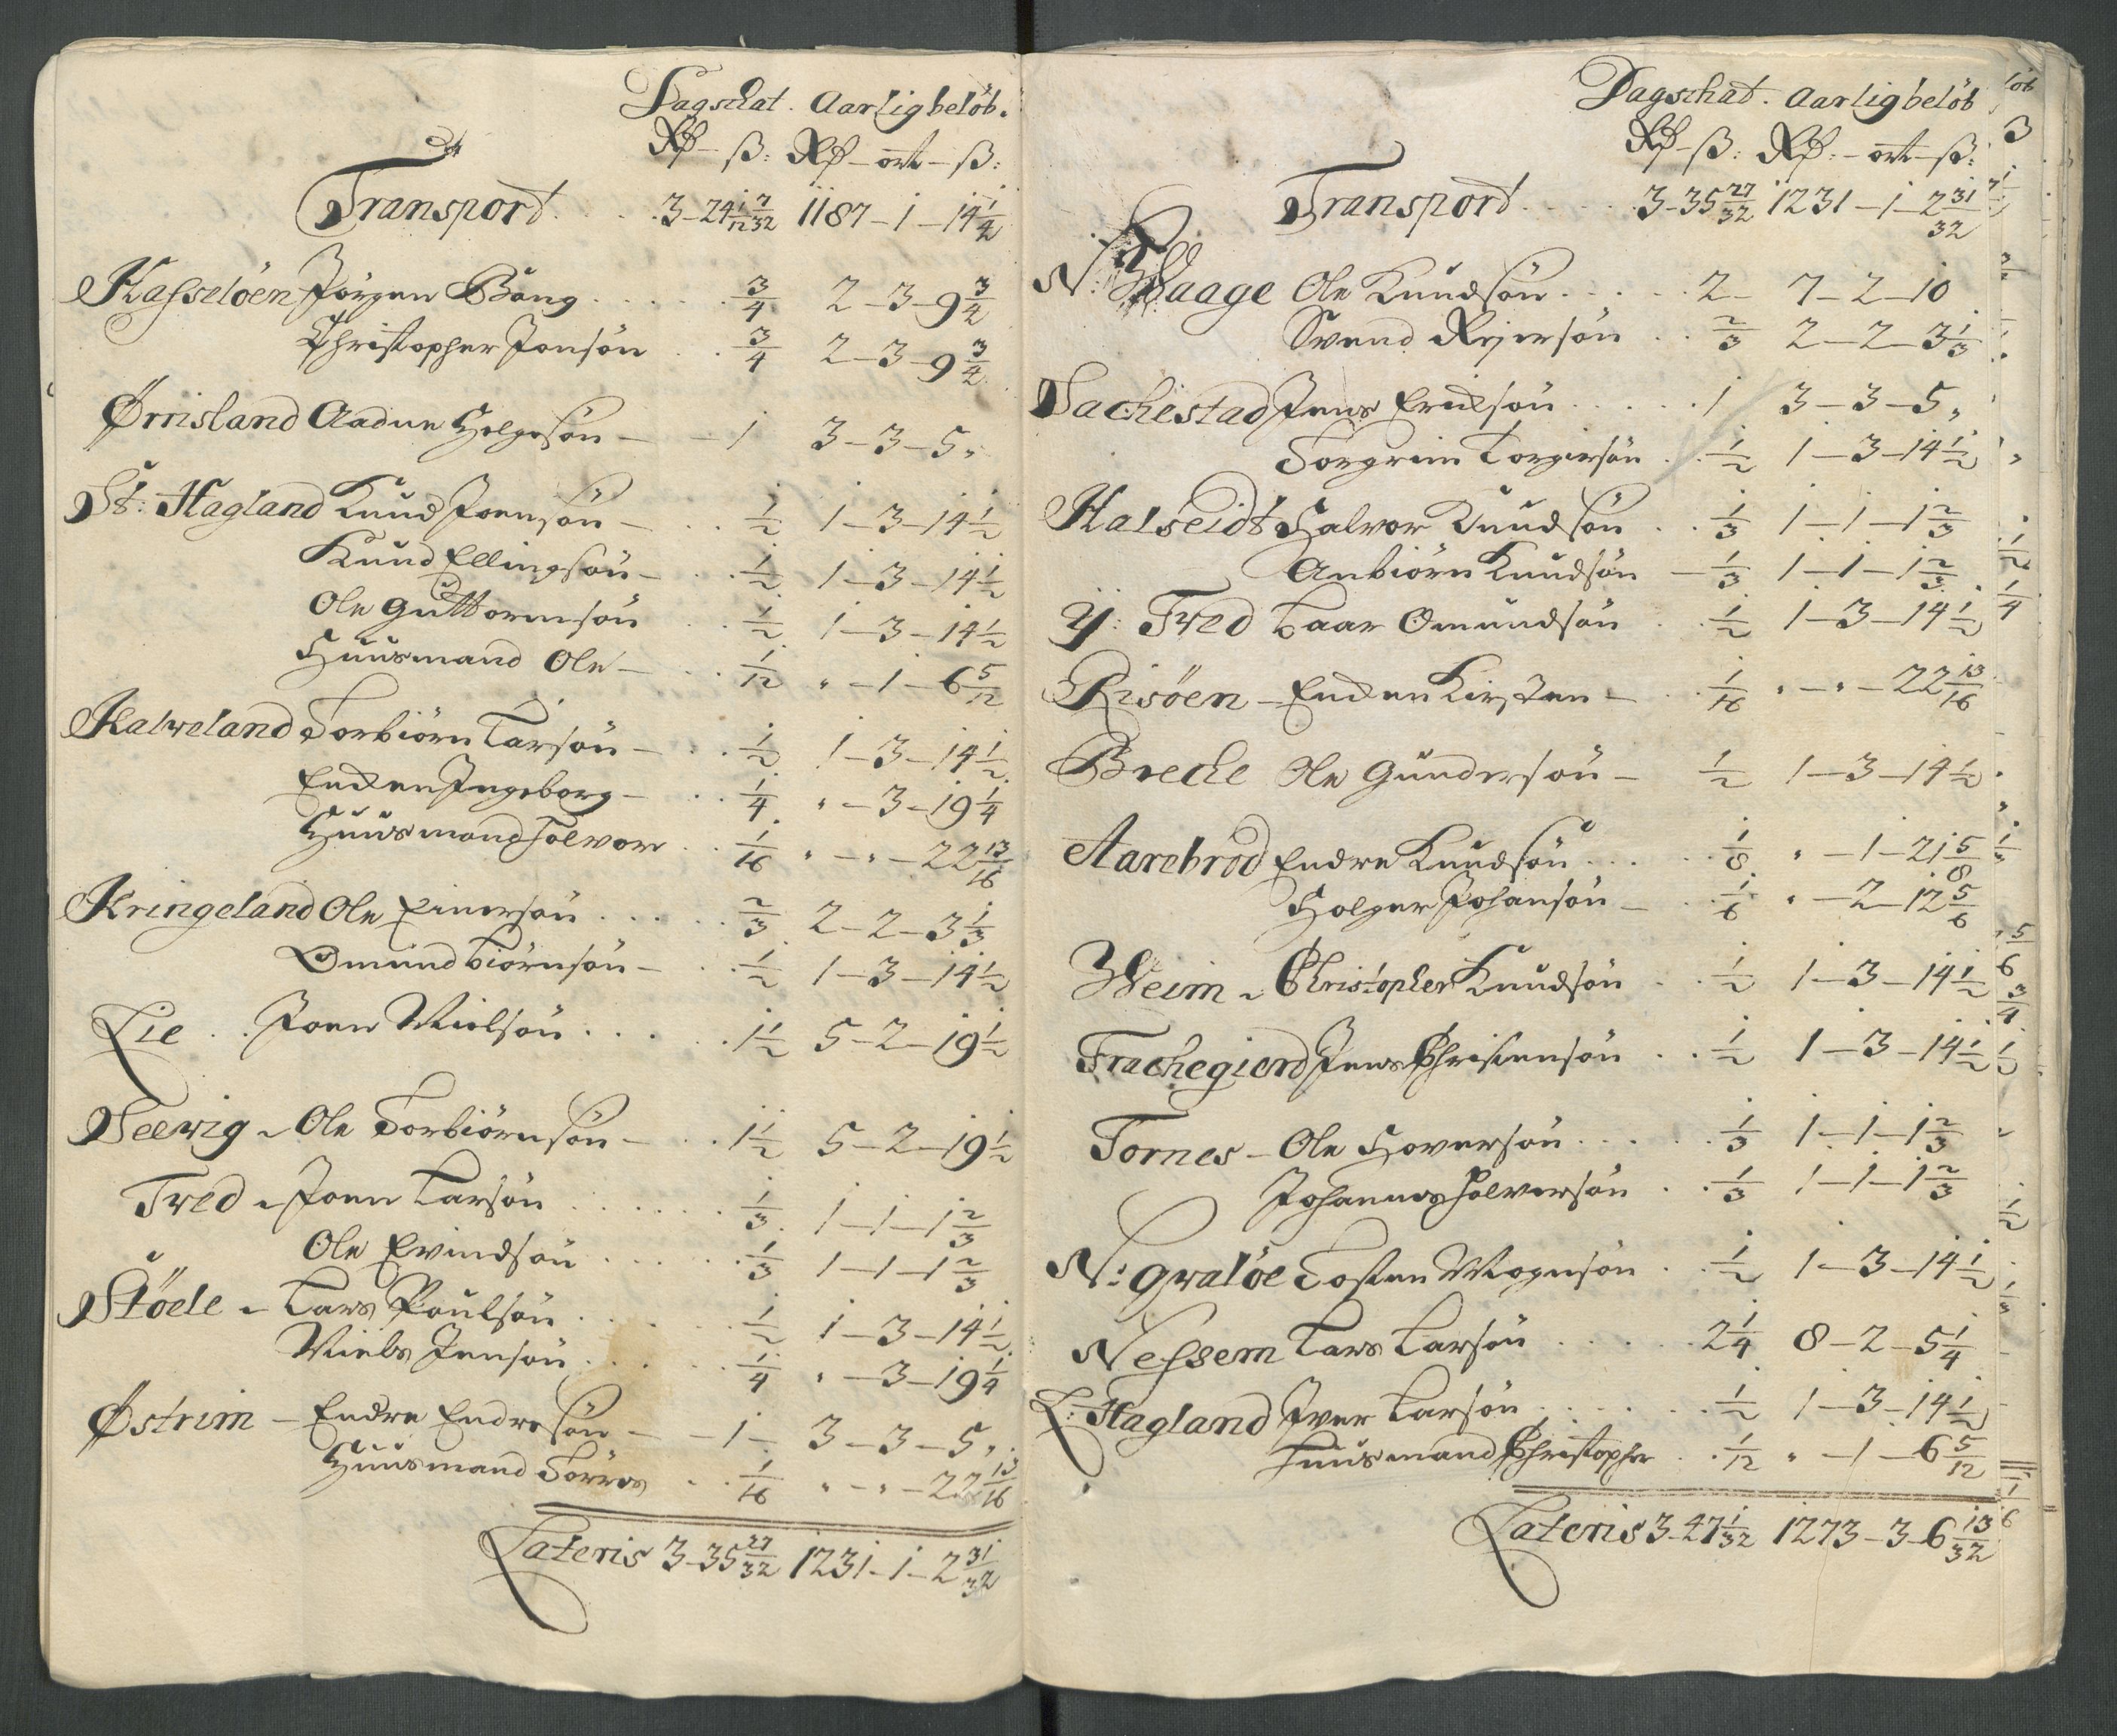 Dagschat. Aarlig beløb.
Rd – ß: Rd – ort – ß:
Transport. . . . 3–24 1/12 7/32 1187–1–14 1/4
Hasseløen Jørgen Bang . . . . 3/4 2–3–9 3/4
Christopher Jonsøn . . 3/4 2–3–9 3/4
Ørrisland Aadne Helgesøn – –1 3–3–5 „
St: Hagland Knud Joensøn – . . 1/2 1–3–14 1/2
Knud Ellingsøn – . . 1/2 1–3–14 1/2
Ole Guttormsøn . . 1/2 1–3–14 1/2
Huusmand Ole – . . 1/12 „–1–6 5/12
Kalveland Torbiørn Larsøn – . . 1/2 1–3–14 1/2
Enken Ingeborg – . . 1/4 „–3–19 1/4
Huusmand Halvor . . 1/16 „–„–22 13/16
Kringeland Ole Einersøn . . . . 2/3 2–2–3 1/3
Omund Biørnsøn – . . 1/2 1–3–14 1/2
Lie . . Joen Nielsøn . . . . 1 1/2 5–2–19 1/2
Seevig – Ole Torbiørnsøn – . . 1 1/2 5–2–19 1/2
Tved – Joen Larsøn . . . . 1/3 1–1–1 2/3
Ole Evindsøn . . . . 1/3 1–1–1 2/3
Støele – Lars Poulsøn . . . . 1/2 1–3–14 1/2
Niels Jensøn . . . . 1/4 „–3–19 1/4
Østrim – Endre Endresøn – –1– 3–3–5 „
Huusmand Tørres . . 1/16 „–„–22 13/16
Lateris 3–35 27/32 1231–1–2 31/32
Dagschat. Aarlig beløb
Rd – ß: Rd: – ort – ß:
Transport. . . . 3–35 27/32 1231–1–2 31/32
N: Waage Ole Knudsøn . . . . 2– 7–2–10
Svend Rejersøn . . 2/3 2–2–3 1/3
Sachestad Jens Erichsøn . . . . 1 3–3–5 „
Torgrim Torgiersøn . . 1/2 1–3–14 1/2
Halseidt Halvor Knudsøn . . 1/3 1–1–1 2/3
Anbiørn Knudsøn – 1/3 1–1–1 2/3
Y: Tved Laar Omundsøn . . 1/2 1–3–14 1/2
Risøen – Enken Kirsten – . . 1/16 „–„–22 13/16
Breche Ole Gundersøn – 1/2 1–3–14 1/2
Aarebrød Endre Knudsøn . . . . 1/8 „–1–21 5/8
Holger Johansøn – . . 1/6 „–2–12 5/6
Weim – Christopher Knudsøn . . 1/2 1–3–14 1/2
Frachegierd Jens Christensøn . . 1/2 1–3–14 1/2
Tornes – Ole Hoversøn . . . . 1/3 1–1–1 2/3
Johannes Halversøn . . 1/3 1–1–1 2/3
N: Qvaløe Tosten Mogensøn . . 1/2 1–3–14 1/2
Nessem Lars Larsøn . . . . 2 1/4 8–2–5 1/4
L: Hagland Iver Larsøn . . . . 1/2 1–3–14 1/2
Huusmand Christopher . . 1/12 „–1–6 5/12
Lateris 3–47 1/32 1273–3–6 13/32